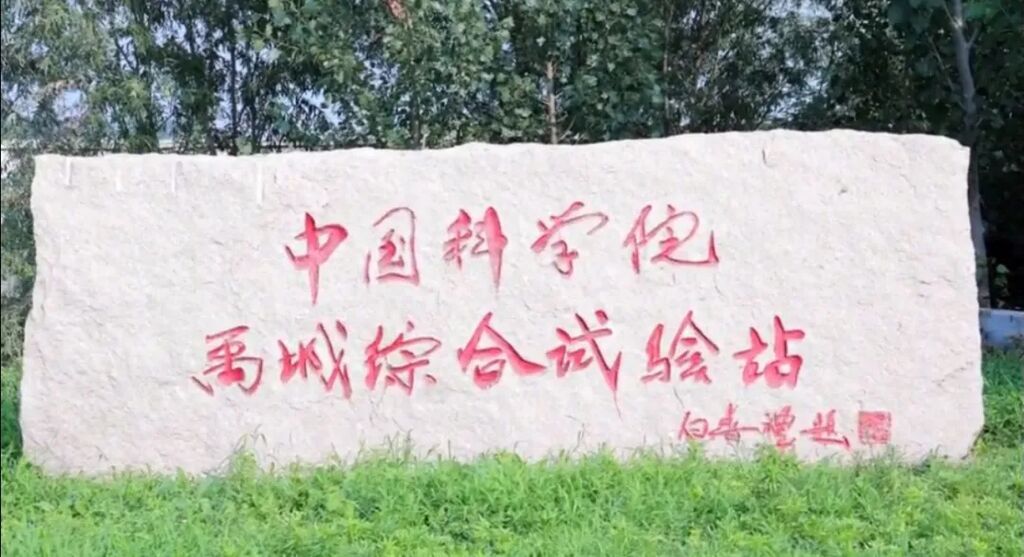 中国科学院
禹城综合试验站
白春礼题